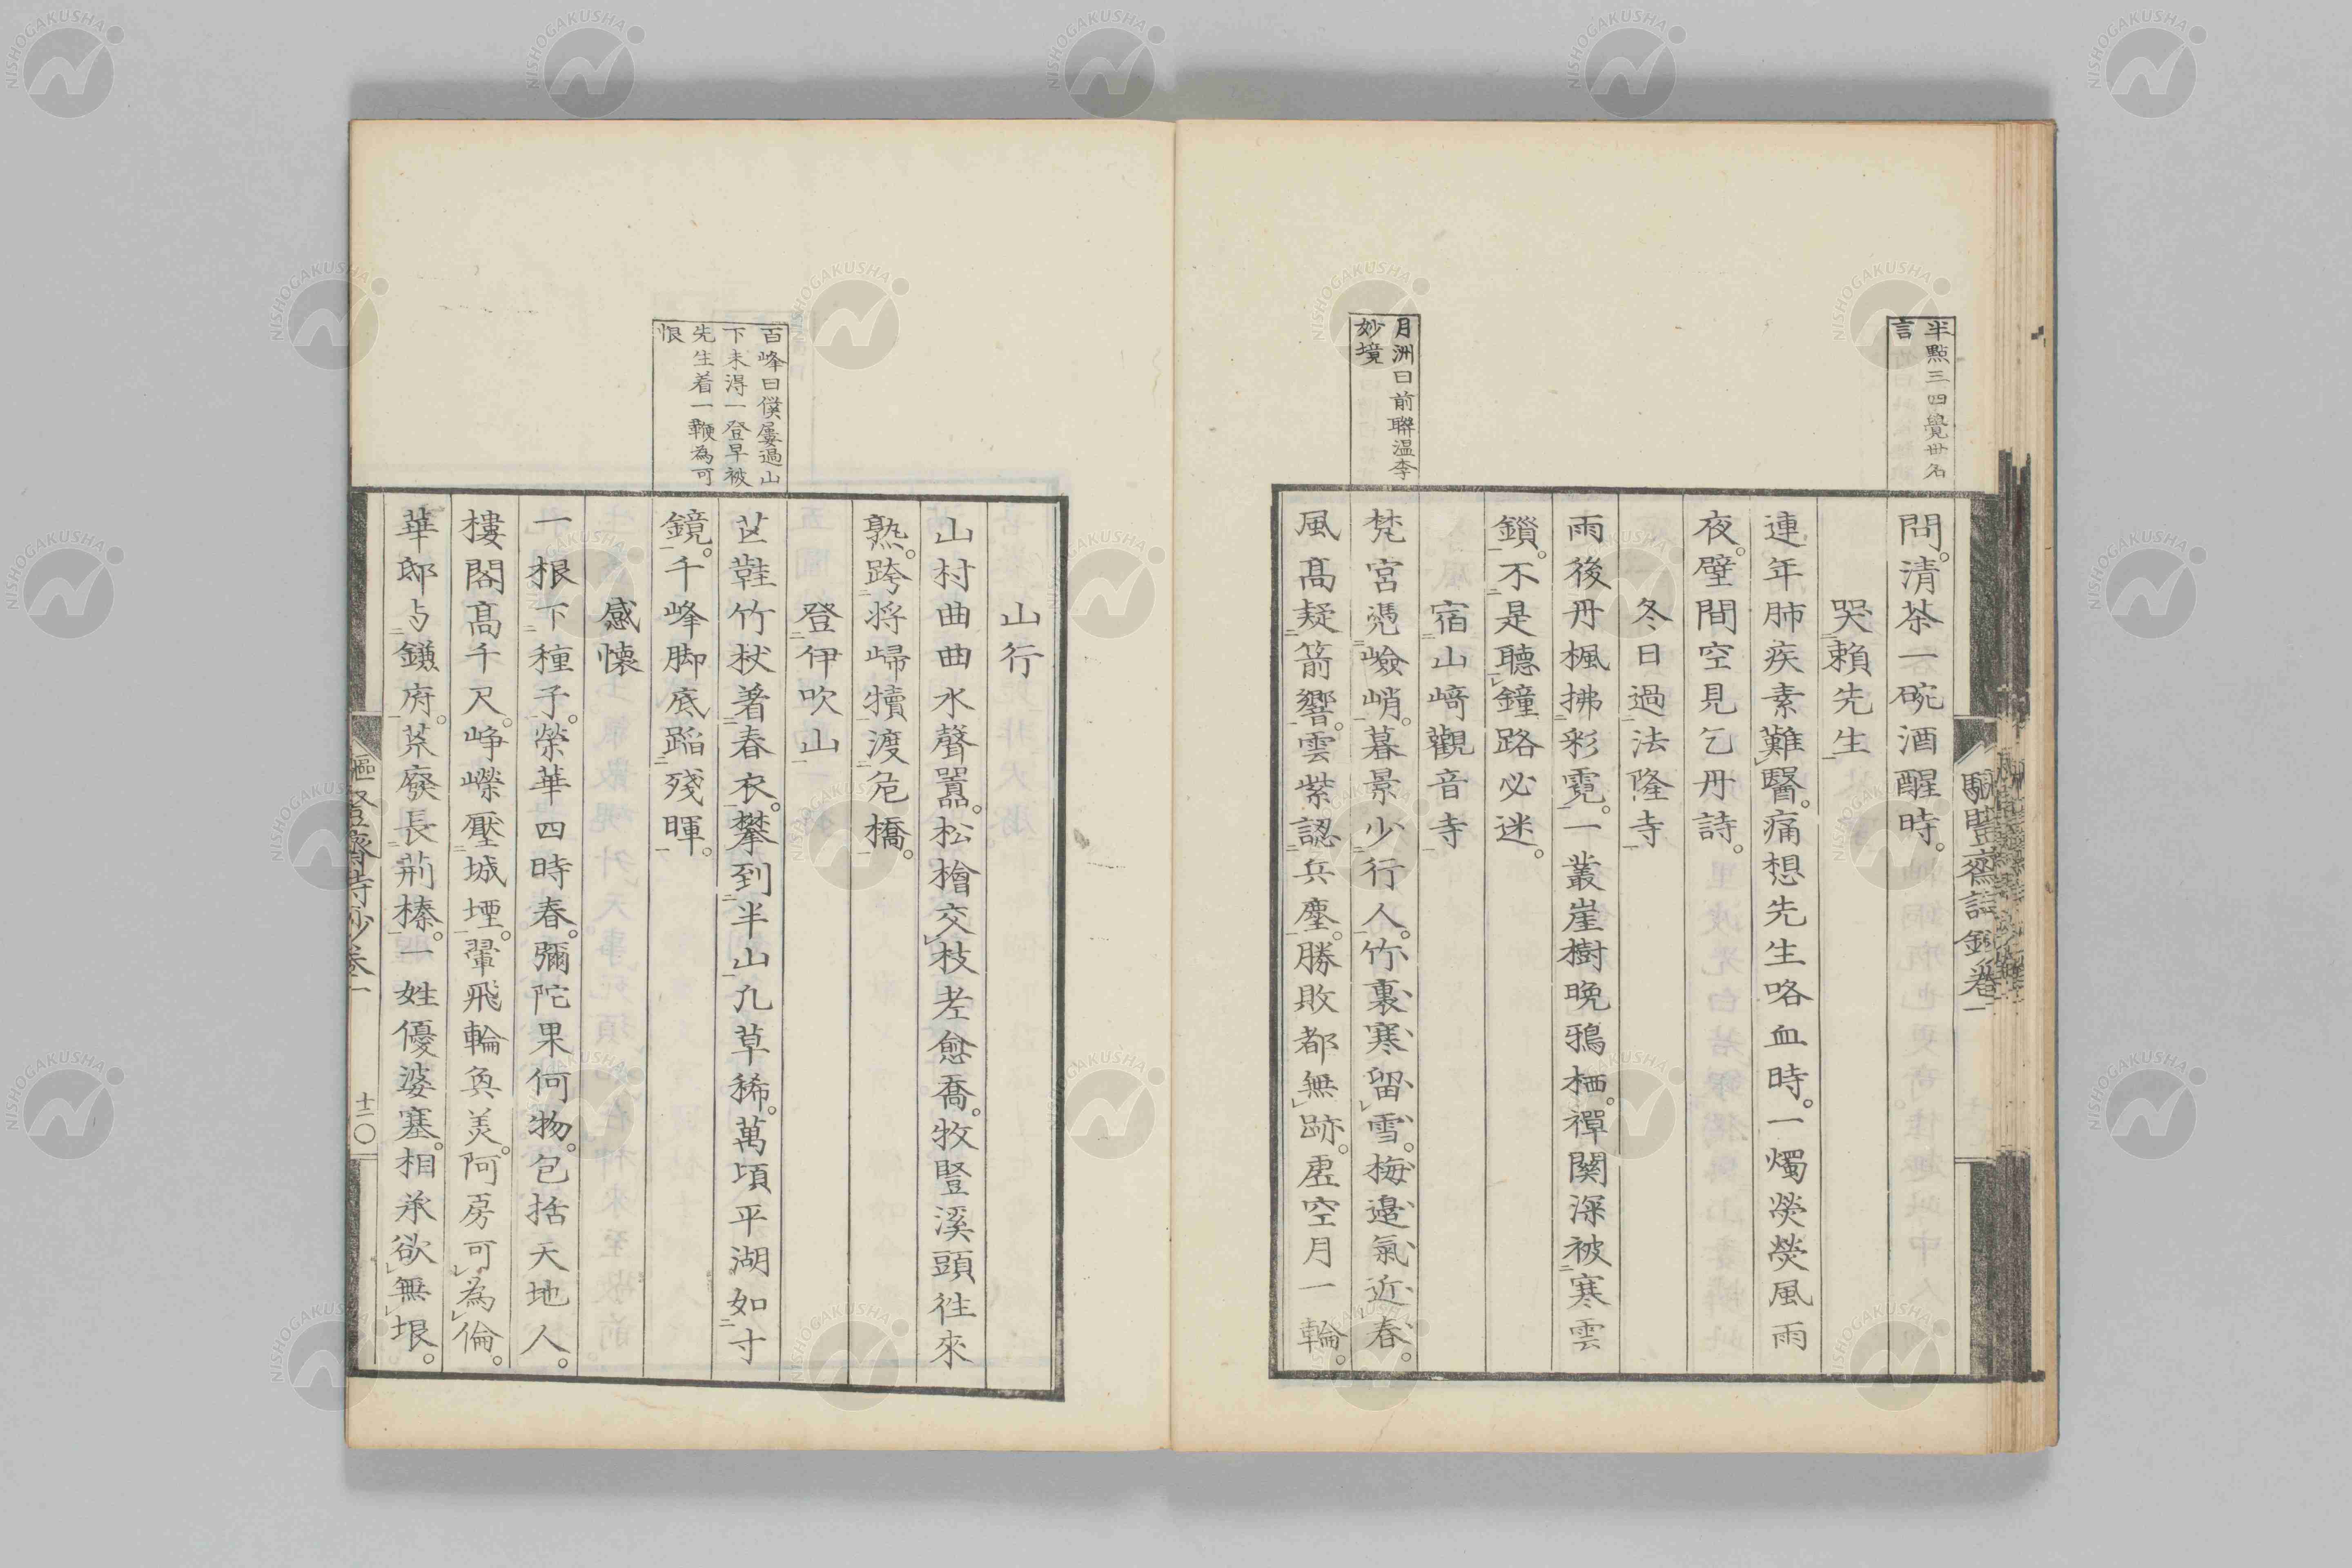 半點三四覺世名
言
問。清茶一碗酒醒時。
哭賴先生
連年肺疾素難醫。痛想先生咯血時。一燭熒熒風雨
夜。壁間空見乞丹詩。
冬日過法隆寺
雨後丹楓拂彩霓。一叢崖樹晚鴉栖。禪關深被寒雲
鎖。不是聽鐘路必迷。
宿山崎觀音寺
月洲曰前聯溫李
妙境
梵宮憑嶮峭。暮景少行人。竹裏寒留雪。梅邊氣近春。
風高疑箭響。雲紫認兵塵。勝敗都無跡。虛空月一輪。
山行
山村曲曲水聲囂。松檜交枝老愈喬。牧豎溪頭往來
熟。跨将歸犢渡危橋。
登伊吹山
百峰曰僕屢過山
下未得一登早被
先生着一鞭為可
恨
芒鞋竹杖著春衣。攀到半山凡草稀。萬頃平湖如寸
鏡。千峰脚底蹈殘暉。
感懷
一根下種子。榮華四時春。彌陀果何物。包括天地人。
樓閣高千尺。崢嶸壓城堙。翬飛輪奐美。阿房可為倫。
華邸与鎌府。荒廢長荊榛。一姓優婆塞。相承欲無垠。
詩鈔卷一
十二
NISHOGAKUSHA